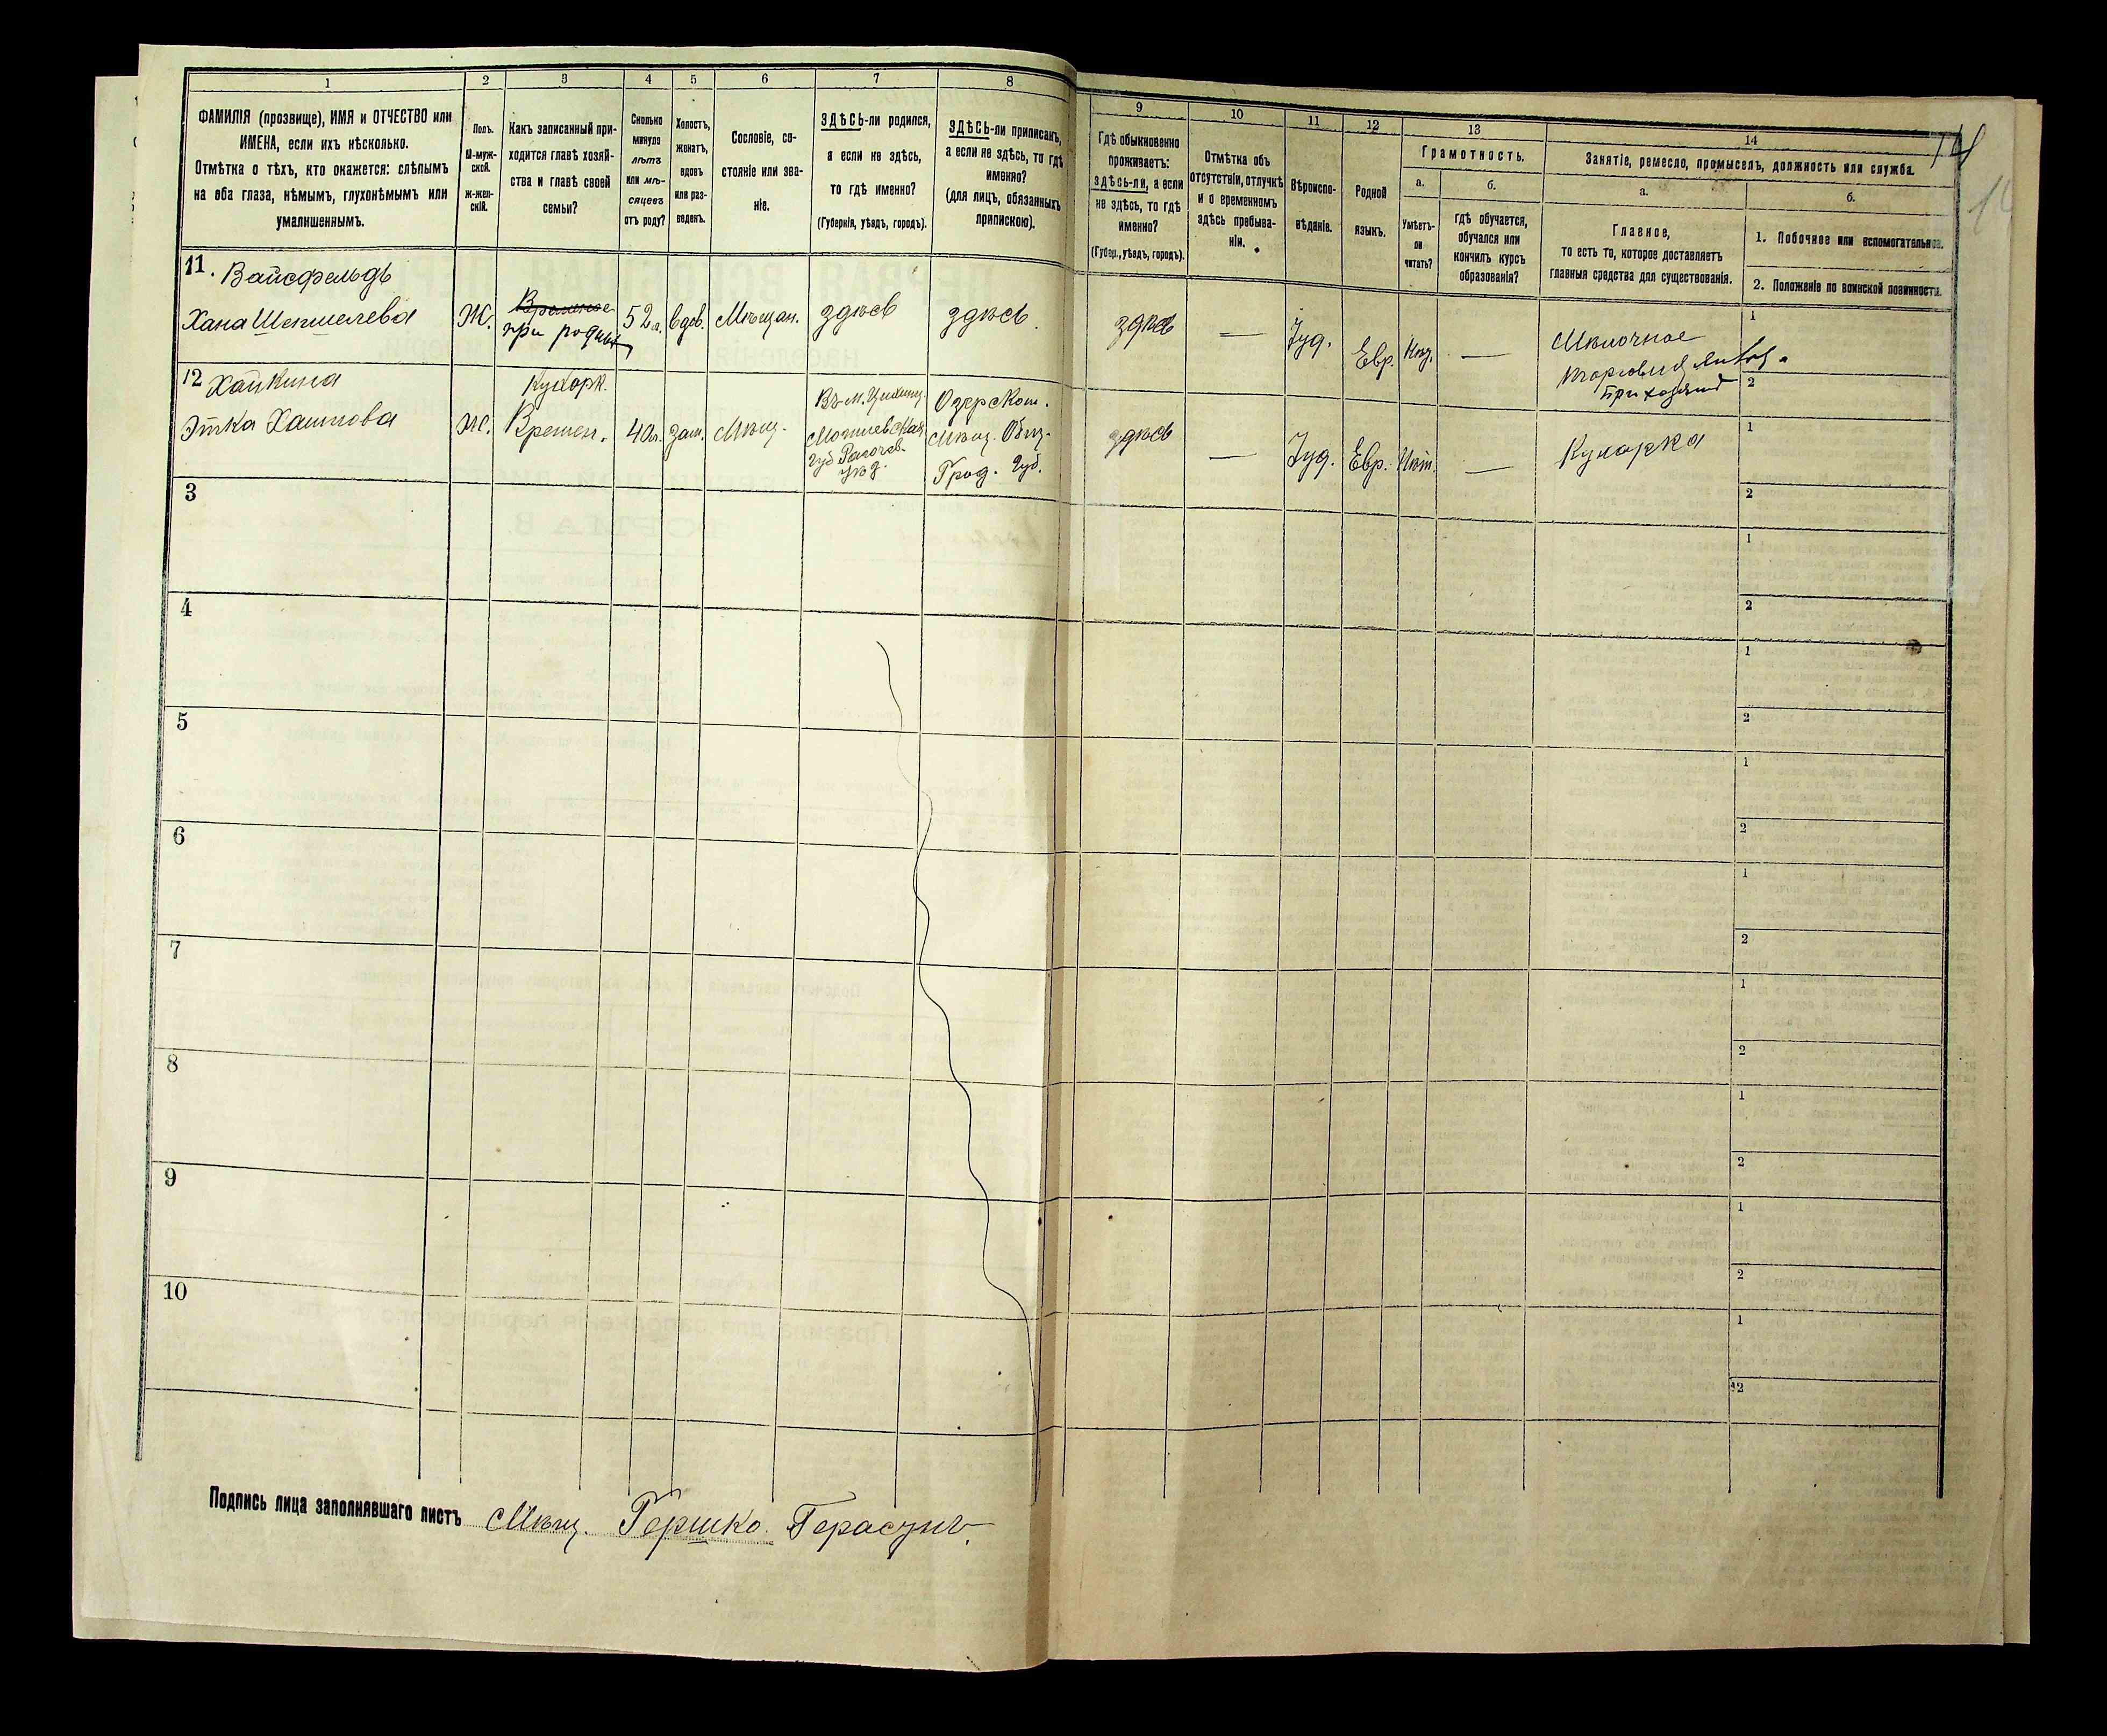 1
2
3
4
5
6
7
8
9
10
11
12
13
14
14
ФАМИЛІЯ (прозвище), ИМЯ и ОТЧЕСТВО или
ИМЕНА, если ихъ нѣсколько.
Отмѣтка о тѣхъ, кто окажется: слѣпымъ
на оба глаза, нѣмымъ, глухонѣмымъ или
умалишеннымъ.
Полъ.
М-муж-
ской.
Ж-жен-
скій.
Какъ записанный при-
ходится главѣ хозяй-
ства и главѣ своей
семьи?
Сколько
минуло
лѣтъ
или мѣ-
сяцевъ
отъ роду?
Холостъ,
женатъ,
вдовъ
или раз-
веденъ.
Сословіе, со-
стояніе или зва-
ніе.
ЗДѢСЬ-ли родился,
а если не здѣсь,
то гдѣ именно?
(Губернія, уѣздъ, городъ).
ЗДѢСЬ-ли приписанъ,
а если не здѣсь, то гдѣ
именно?
(для лицъ, обязанныхъ
припискою).
Гдѣ обыкновенно
проживаетъ:
здѣсь-ли, а если
не здѣсь, то гдѣ
именно?
(Губер., уѣздъ, городъ).
Отмѣтка объ
отсутствіи, отлучкѣ
и о временномъ
здѣсь пребыва-
ніи.
Вѣроиспо-
вѣданіе.
Родной
языкъ.
Грамотность.
а.
Умѣетъ-
ли
читать?
б.
гдѣ обучается,
обучался или
кончилъ курсъ
образованія?
Занятіе, ремесло, промыселъ, должность или служба.
а.
Главное,
то есть то, которое доставляетъ
главныя средства для существованія.
б.
1. Побочное или вспомогательное.
2. Положеніе по воинской повинности.
11. Вайсфельдъ
Хана Шепшелева
Ж.
при родных
52 л.
вдов.
Мѣщан.
здѣсь
здѣсь.
здѣсь
—
Іуд.
Евр.
—
Мѣлочное
1
2
12 Хайкина
Этка Хаимова
Ж.
Кухарк.
Времен.
40 л.
зам.
Мѣщ.
Въ м.
Могилевская
губ Рагочев.
уѣзд.
Озерском.
Мѣщ. Общ.
Грод. Губ.
здѣсь
—
Іуд.
Евр.
Нѣт.
—
Кухарка
1
2
3
1
2
4
1
2
5
1
2
6
1
2
7
1
2
8
1
2
9
1
2
10
1
2
Подпись лица заполнявшаго листъ Мѣщ. Гершко Герасунъ.